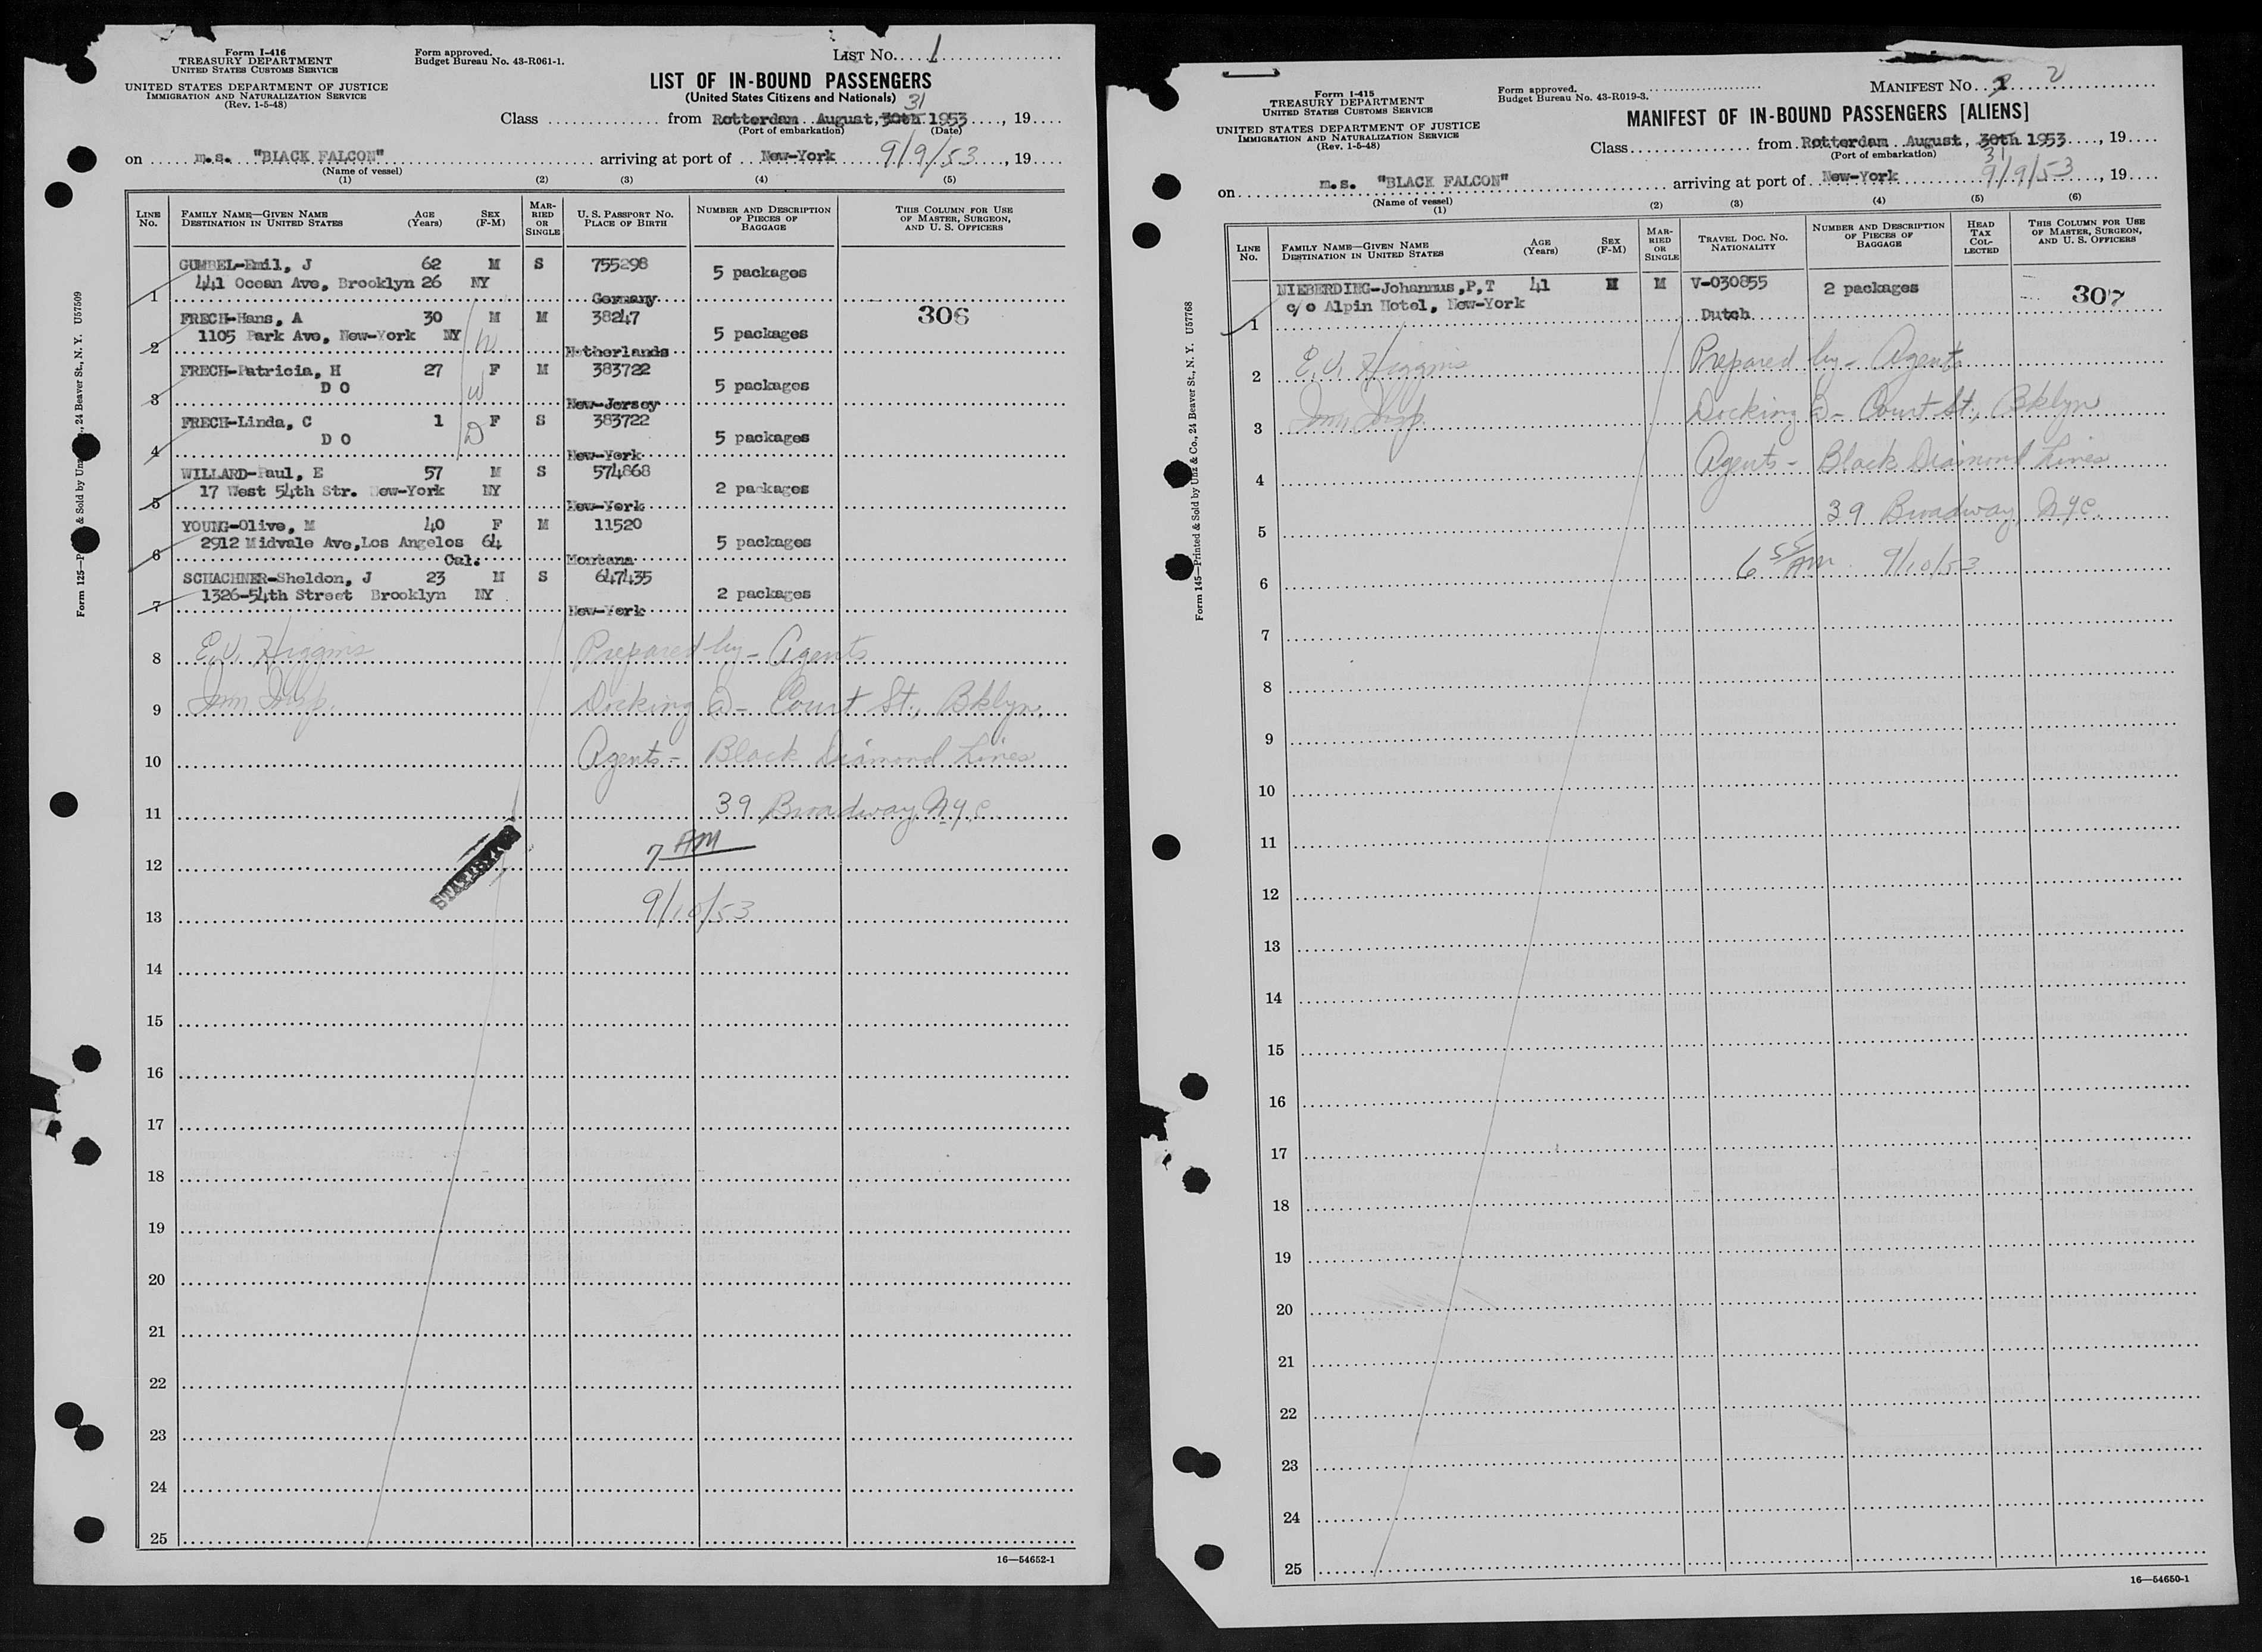 Form I-416
TREASURY DEPARTMENT
UNITED STATES CUSTOMS SERVICE
UNITED STATES DEPARTMENT OF JUSTICE
IMMIGRATION AND NATURALIZATION SERVICE
(Rev. 1-5-48)
Form approved.
Budget Bureau No. 43-R061-1.
LIST No. 1
LIST OF IN-BOUND PASSENGERS
(United States Citizens and Nationals)
31
Class from Rotterdam August, 30th 1953, 19
(Port of embarkation) (Date)
on m.s. "BLACK FALCON" arriving at port of New-York 9/9/53, 19
(Name of vessel)
(1) (2) (3) (4) (5)
LINE No. FAMILY NAME—GIVEN NAME DESTINATION IN UNITED STATES AGE (Years) SEX (F-M) MARRIED OR SINGLE U. S. PASSPORT No. PLACE OF BIRTH NUMBER AND DESCRIPTION OF PIECES OF BAGGAGE THIS COLUMN FOR USE OF MASTER, SURGEON, AND U. S. OFFICERS
GUMBEL-Emil, J 62 M S 755298 5 packages
441 Ocean Ave, Brooklyn 26 NY
1 Germany
FRECH-Hans, A 30 M M 38247 306
1105 Park Ave, New-York NY 5 packages
2 H Netherlands
FRECH-Patricia, H 27 F M 383722
D O 5 packages
3 W New-Jersey
FRECH-Linda, C 1 F S 383722
D O D 5 packages
4 New-York
WILLARD-Paul, E 57 M S 574868
17 West 54th Str. New-York NY 2 packages
5 New-York
YOUNG-Olive, M 40 F M 11520
2912 Midvale Ave, Los Angelos 64 5 packages
6 Cal. Montana
SCHACHNER-Sheldon, J 23 M S 647435
1326-54th Street Brooklyn NY 2 packages
7 New-York
8 E.V. Higgins Prepared by - Agents
9 Imm Insp. Docking @ - Court St., Bklyn.
10 Agents - Black Diamond Lines
11 39 Broadway, N.Y.C.
12 7 AM
13 9/10/53
14
15
16
17
18
19
20
21
22
23
24
25
16—54652-1
U57509
Form I-415
TREASURY DEPARTMENT
UNITED STATES CUSTOMS SERVICE
UNITED STATES DEPARTMENT OF JUSTICE
IMMIGRATION AND NATURALIZATION SERVICE
(Rev. 1-5-48)
Form approved.
Budget Bureau No. 43-R019-3.
MANIFEST No. 2
MANIFEST OF IN-BOUND PASSENGERS [ALIENS]
Class from Rotterdam August, 30th 1953, 19
(Port of embarkation) 31
on m.s. "BLACK FALCON" arriving at port of New-York 9/9/53, 19
(Name of vessel)
(1) (2) (3) (4) (5) (6)
LINE No. FAMILY NAME—GIVEN NAME DESTINATION IN UNITED STATES AGE (Years) SEX (F-M) MARRIED OR SINGLE TRAVEL DOC. No. NATIONALITY NUMBER AND DESCRIPTION OF PIECES OF BAGGAGE HEAD TAX COLLECTED THIS COLUMN FOR USE OF MASTER, SURGEON, AND U. S. OFFICERS
NIEBERDING-Johannus, P, T 41 M M V-030855 2 packages 307
c/o Alpin Hotel, New-York
1 Dutch
2 E.V. Higgins Prepared by - Agents
3 Imm Insp. Docking @ - Court St., Bklyn
4 Agents - Black Diamond Lines
5 39 Broadway, NYC.
6 6 55 AM 9/10/53
7
8
9
10
11
12
13
14
15
16
17
18
19
20
21
22
23
24
25
16—54650-1
Form 145—Printed & Sold by Unz & Co., 24 Beaver St., N. Y. U57768